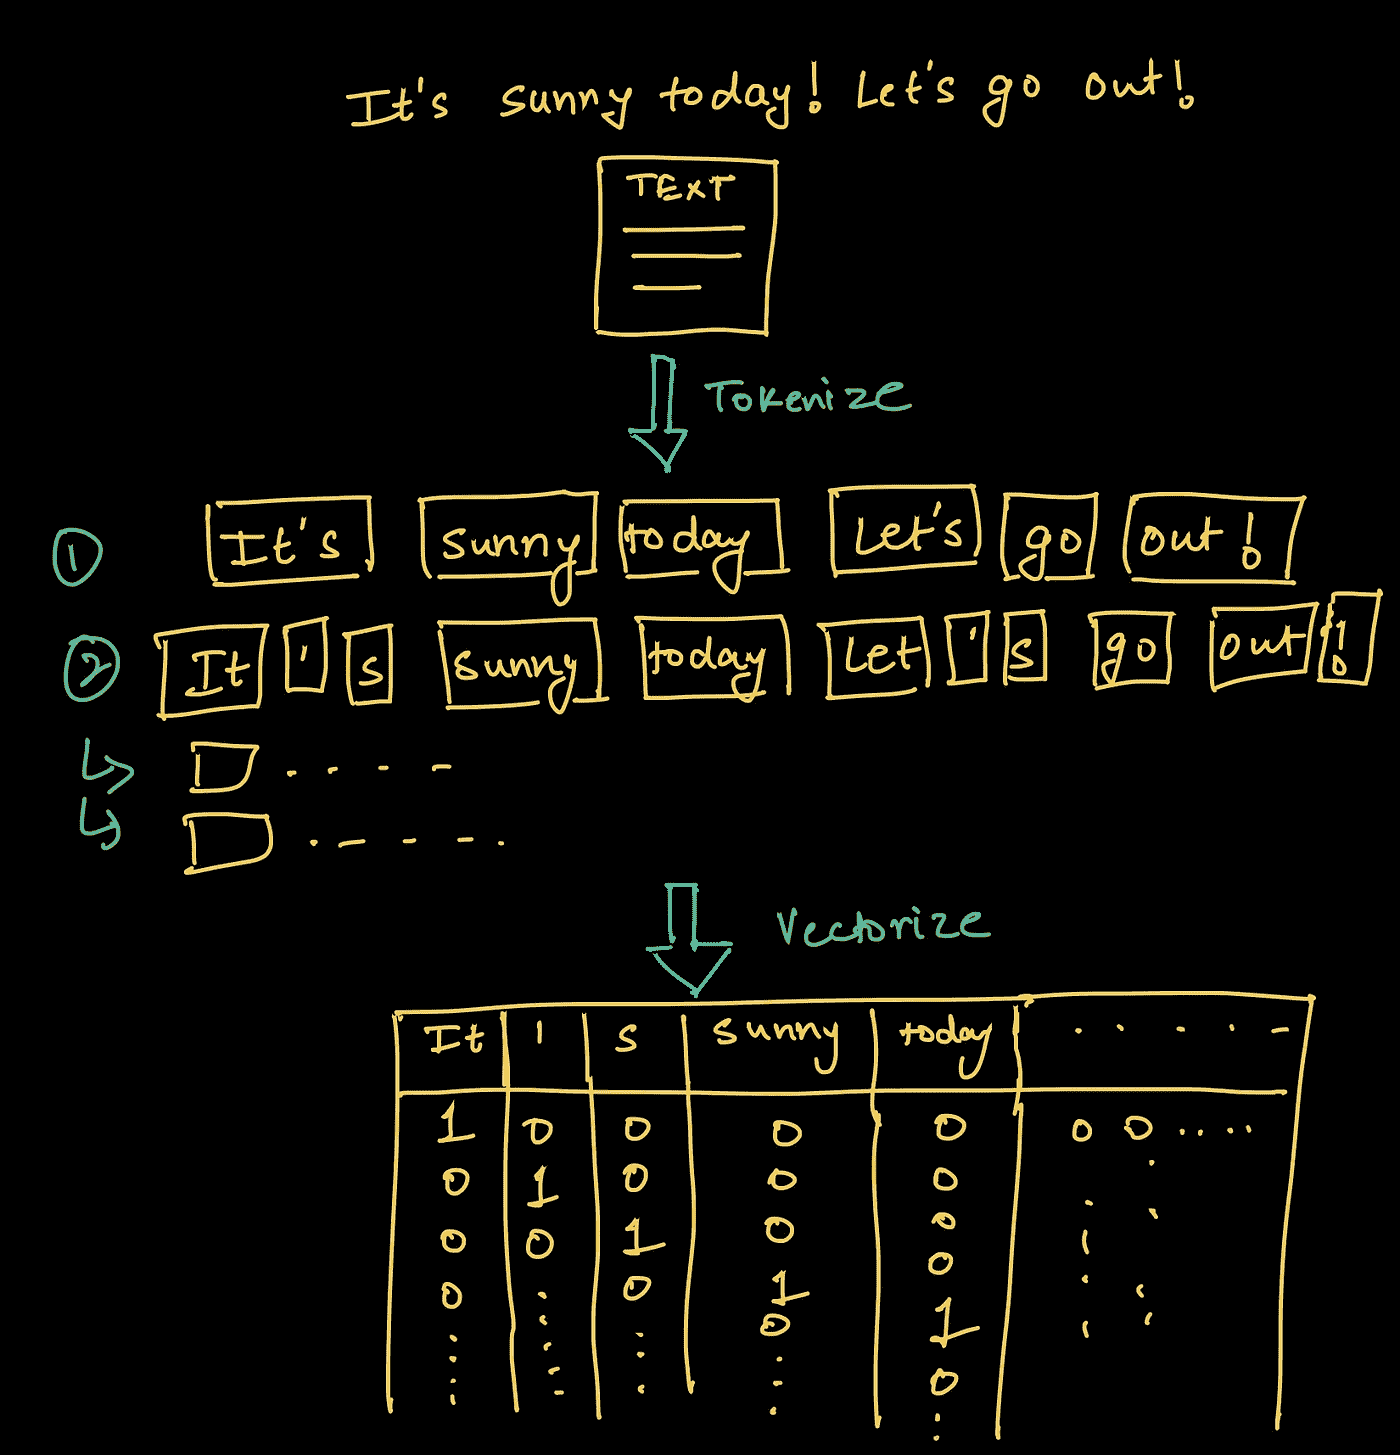 It's sunny today! Let's go out!
TEXT
Tokenize
1 It's sunny today Let's go out!
2 It ' s sunny today Let ' s go out !
Vectorize
It ' s sunny today . . . . -
1 0 0 0 0 0 0 ....
0 1 0 0 0
0 0 1 0 0
0 0 1 0
0 1
0